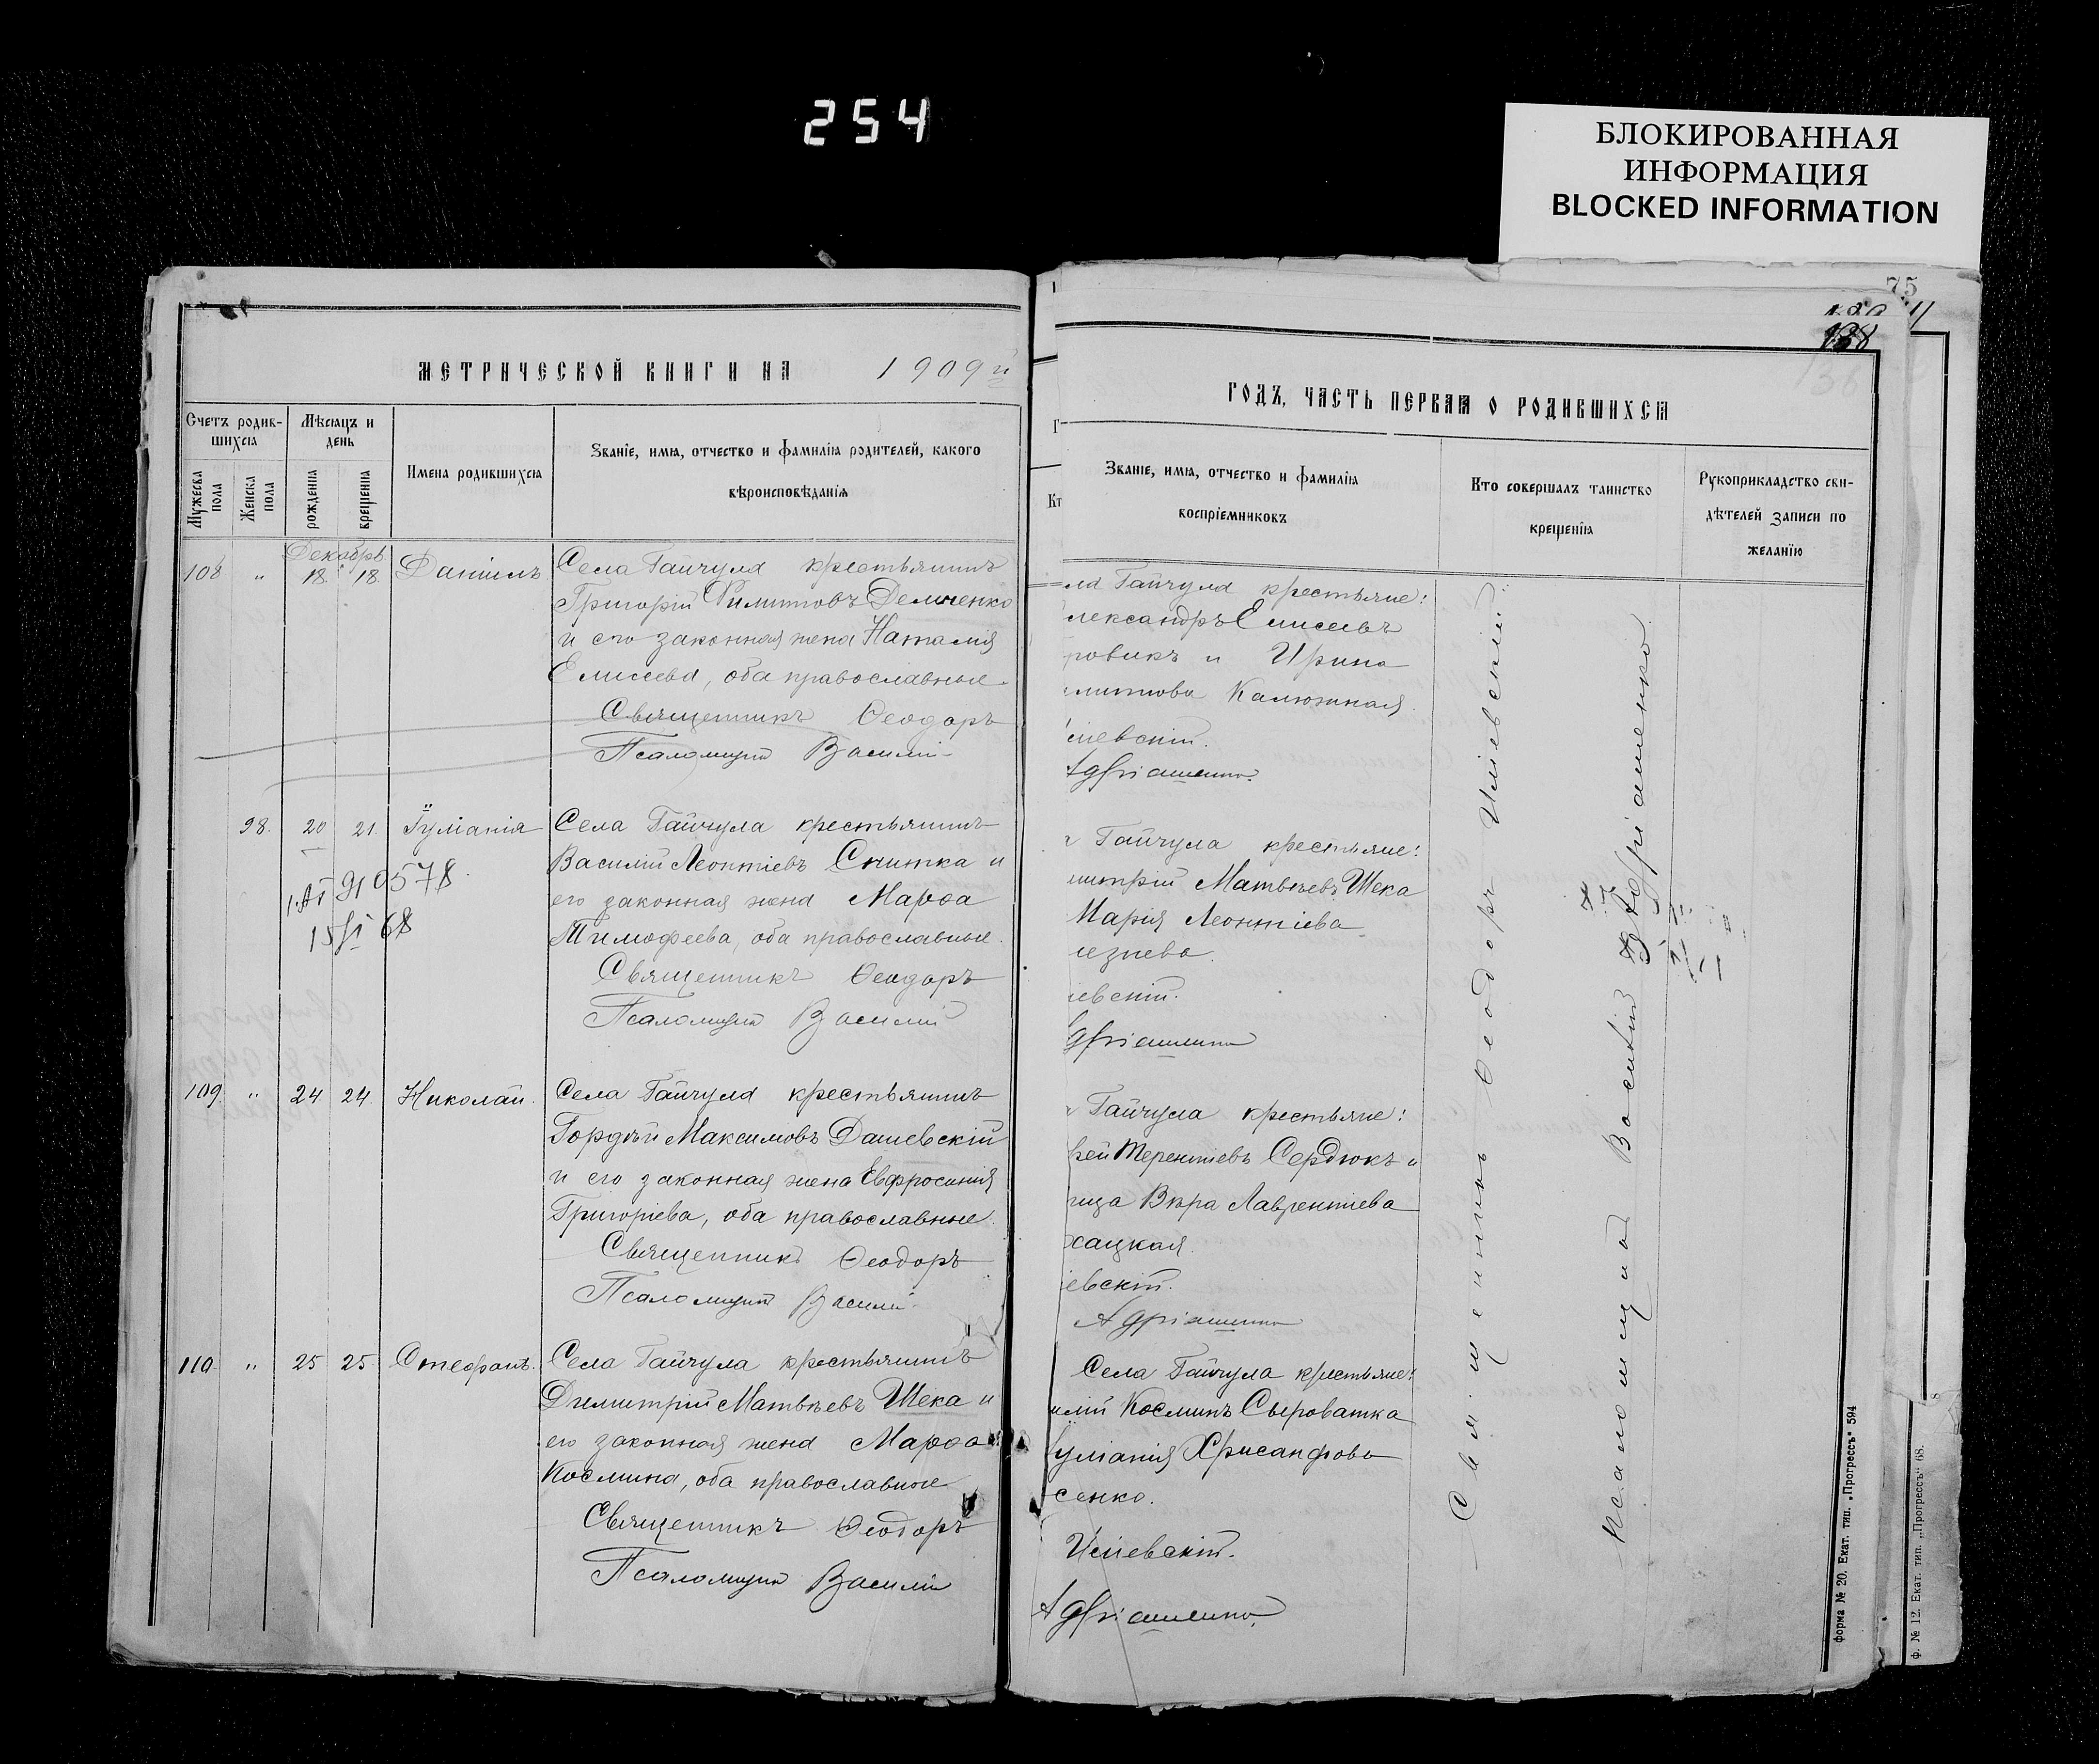 254
БЛОКИРОВАННАЯ
ИНФОРМАЦИЯ
BLOCKED INFORMATION
75
138
МЕТРИЧЕСКОЙ КНИГИ НА 1909й
Счетъ родив-
шихся
Мѣсяцъ и
день
Мужеска
пола
Женска
пола
рожденія
крещенія
Имена родившихся
Званіе, имя, отчество и фамилія родителей, какого
вѣроисповѣданія
Декабрь
108 " 18 18 Даніилъ Села Гайчула крестьянинъ
Григорій Филиповъ Демченко
и его законная жена Наталія
Елисеева, оба православные.
Священникъ Ѳеодоръ
Псаломщикъ Василій
98. 20 21. Іуліанія Села Гайчула крестьянинъ
Василій Леонтіевъ Снитка и
его законная жена Марѳа
Тимофеева, оба православные.
Священникъ Ѳеодоръ
Псаломщикъ Василій
109. " 24 24. Николай. Села Гайчула крестьянинъ
Гордѣй Максимовъ Дашевскій
и его законная жена Евфросинія
Григоріева, оба православные.
Священникъ Ѳеодоръ
Псаломщикъ Василій
110. " 25 25. Стефанъ. Села Гайчула крестьянинъ
Димитрій Матвѣевъ Шека и
его законная жена Марѳа
Космина, оба православные
Священникъ Ѳеодоръ
Псаломщикъ Василій
ГОДЪ, ЧАСТЬ ПЕРВАЯ О РОДИВШИХСЯ
Званіе, имя, отчество и фамилія
воспріемниковъ
Кто совершалъ таинство
крещенія
Рукоприкладство сви-
дѣтелей записи по
желанію
ла Гайчула крестьяне:
лександръ Елисеевъ
ровикъ и Ирина
липпова Калюжная.
евскій.
Гайчула крестьяне:
митрій Матвѣевъ Шека
Марія Леонтіева
езнева.
іевскій.
Гайчула крестьяне:
рей Терентіевъ Сердюкъ и
ица Вѣра Лаврентіева
хацкая.
іевскій.
Села Гайчула крестьяне:
илій Косминъ Сыроватка
уліанія Хрисанфова
сенко.
Священникъ Ѳеодоръ
Псаломщикъ Василій
форма № 20. Екат. тип. „Прогрессъ“ 594
Ф. № 12. Екат. тип. „Прогрессъ“ 68.